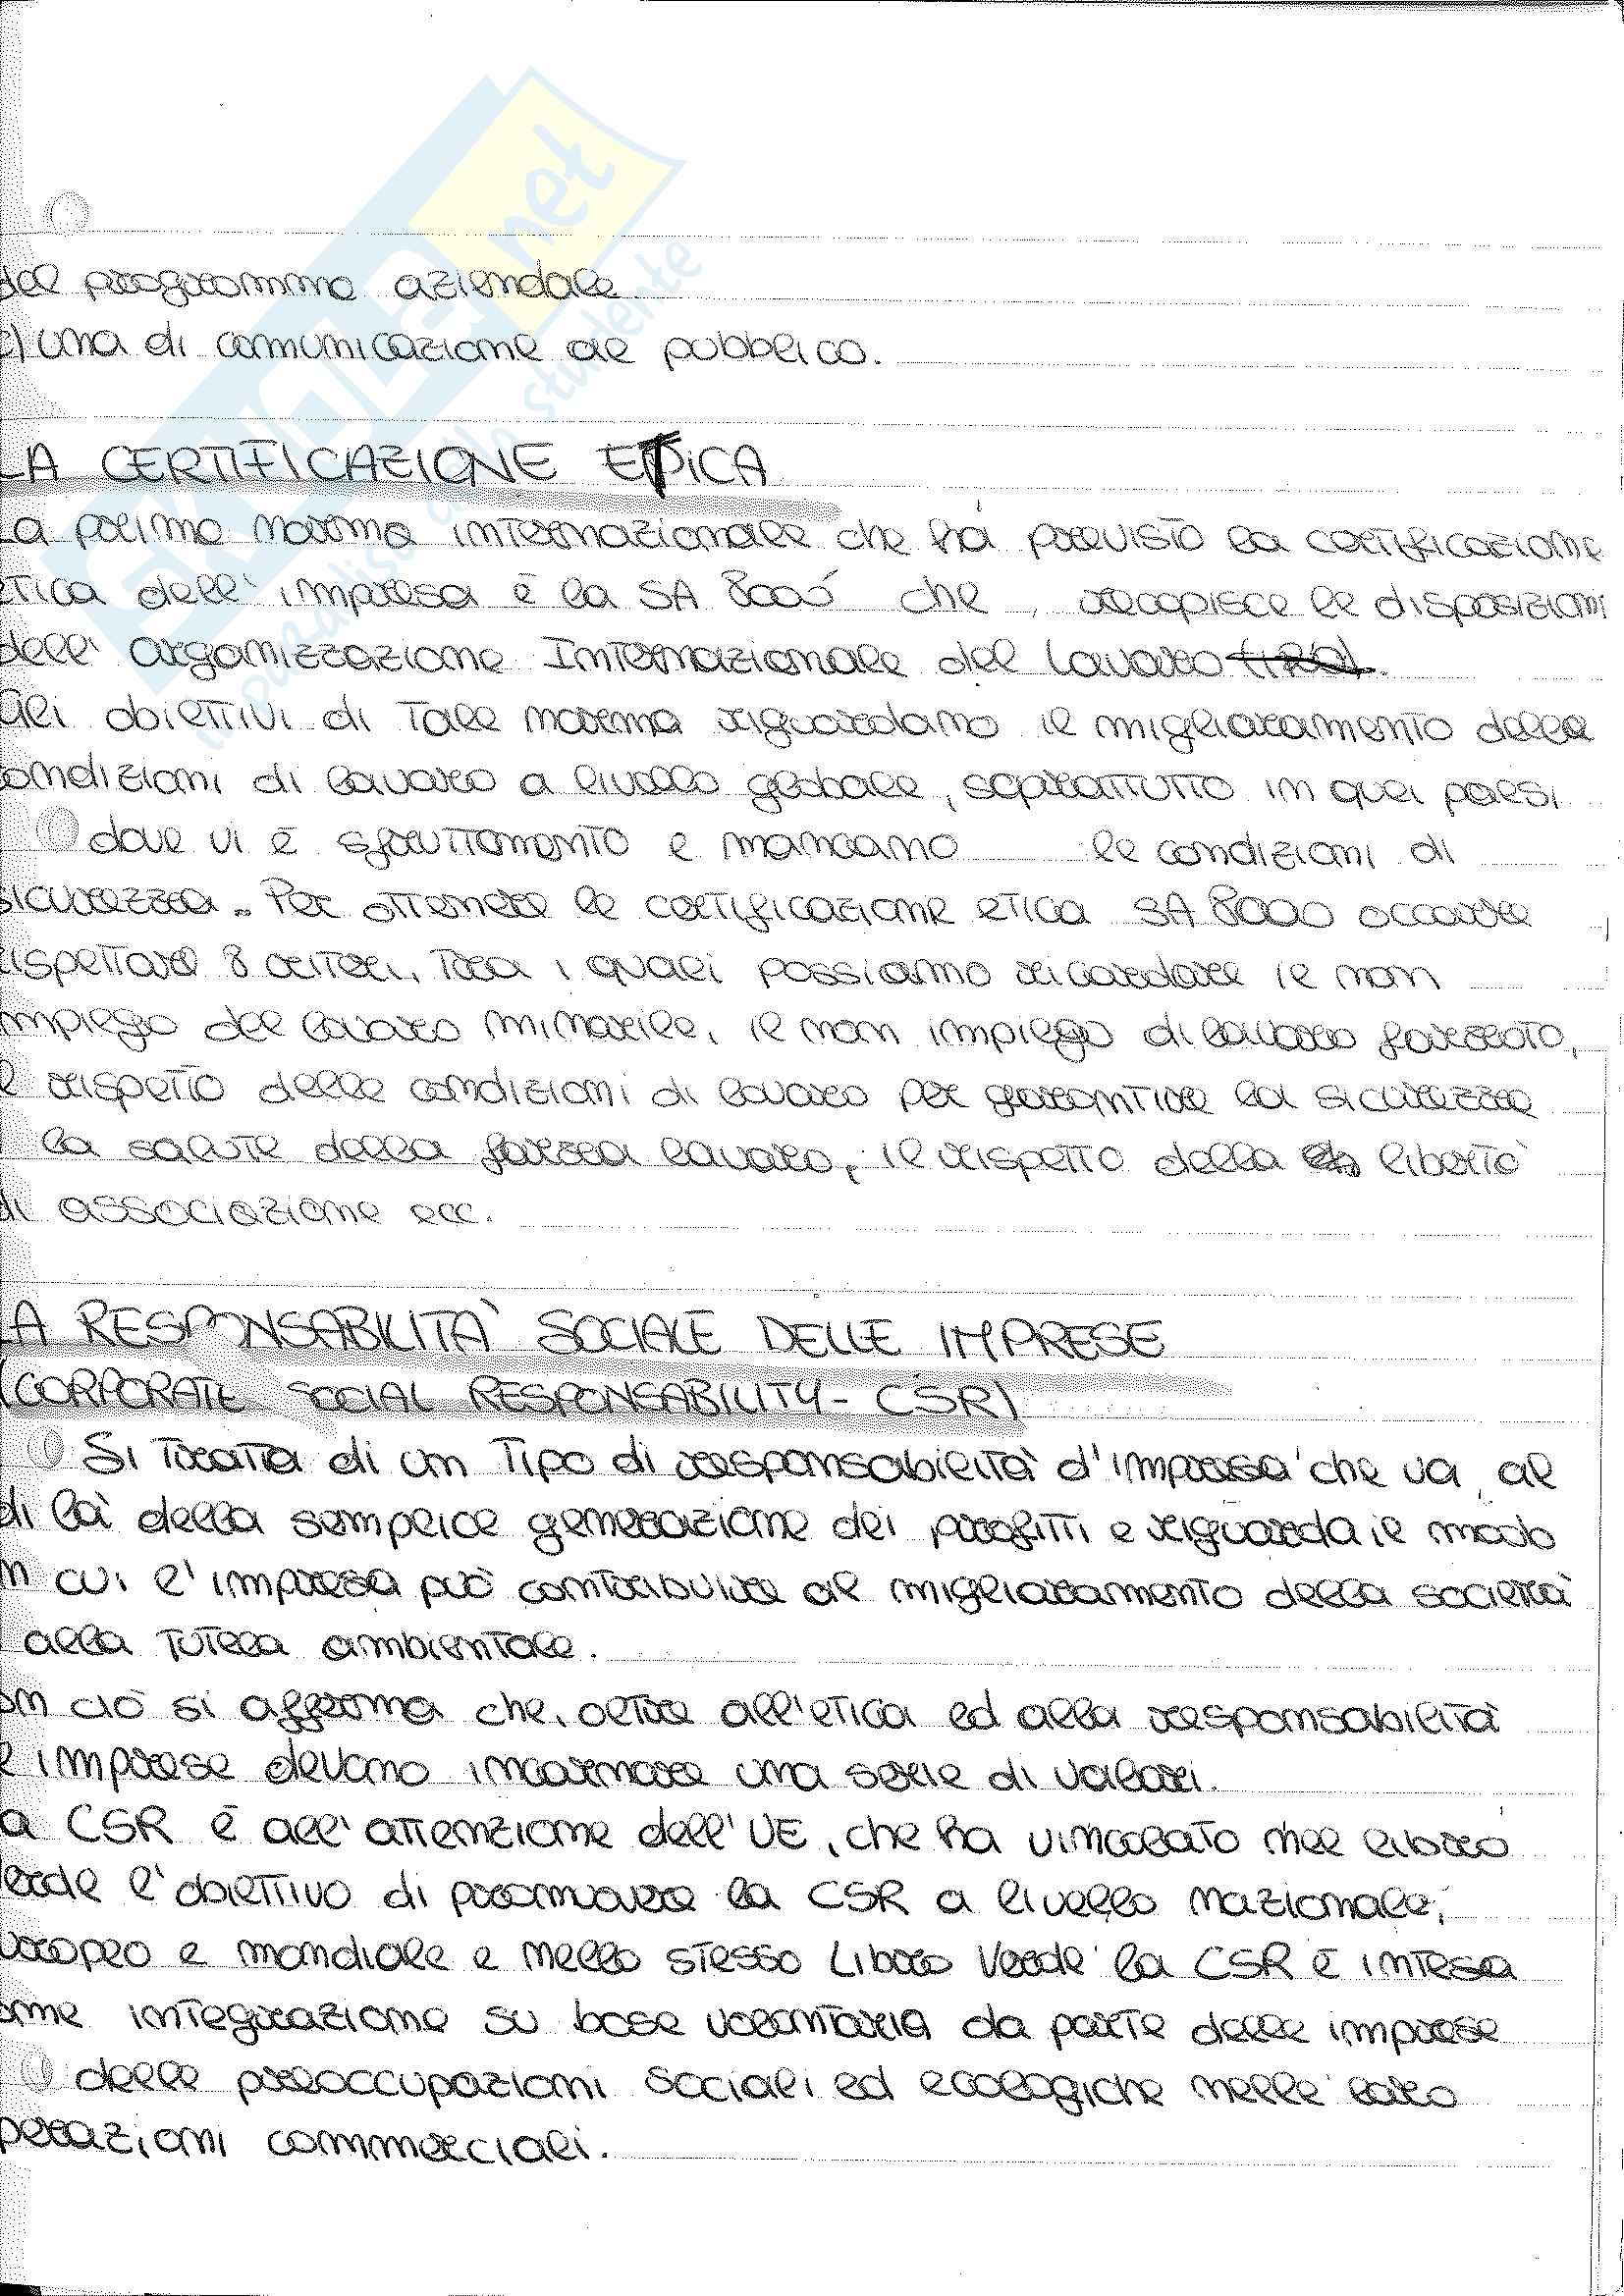 del programma aziendale
c) una di comunicazione al pubblico.
LA CERTIFICAZIONE ETICA
La prima norma internazionale che ha previsto la certificazione
etica dell'impresa è la SA 8000 che, recepisce le disposizioni
dell'organizzazione Internazionale del Lavoro
Gli obiettivi di tale norma riguardano il miglioramento delle
condizioni di lavoro a livello globale, soprattutto in quei paesi
dove vi è sfruttamento e mancano le condizioni di
sicurezza. Per ottenere la certificazione etica SA 8000 occorre
rispettare 8 criteri, tra i quali possiamo ricordare il non
impiego del lavoro minorile, il non impiego di lavoro forzato,
l rispetto delle condizioni di lavoro per garantire la sicurezza
la salute della forza lavoro, il rispetto della libertà
di associazione ecc.
LA RESPONSABILITA' SOCIALE DELLE IMPRESE
(CORPORATE SOCIAL RESPONSABILITY - CSR)
Si tratta di un tipo di responsabilità d'impresa che va al
di là della semplice generazione dei profitti e riguarda il modo
in cui l'impresa può contribuire al miglioramento della società
alla tutela ambientale.
on ciò si afferma che, oltre all'etica ed alla responsabilità
e imprese devono incarnare una serie di valori.
a CSR è all'attenzione dell'UE, che ha vincolato nel libro
Verde l'obiettivo di promuovere la CSR a livello nazionale,
europeo e mondiale e nello stesso Libro Verde la CSR è intesa
ome integrazione su base volontaria da parte delle imprese
delle preoccupazioni sociali ed ecologiche nelle loro
perazioni commerciali.